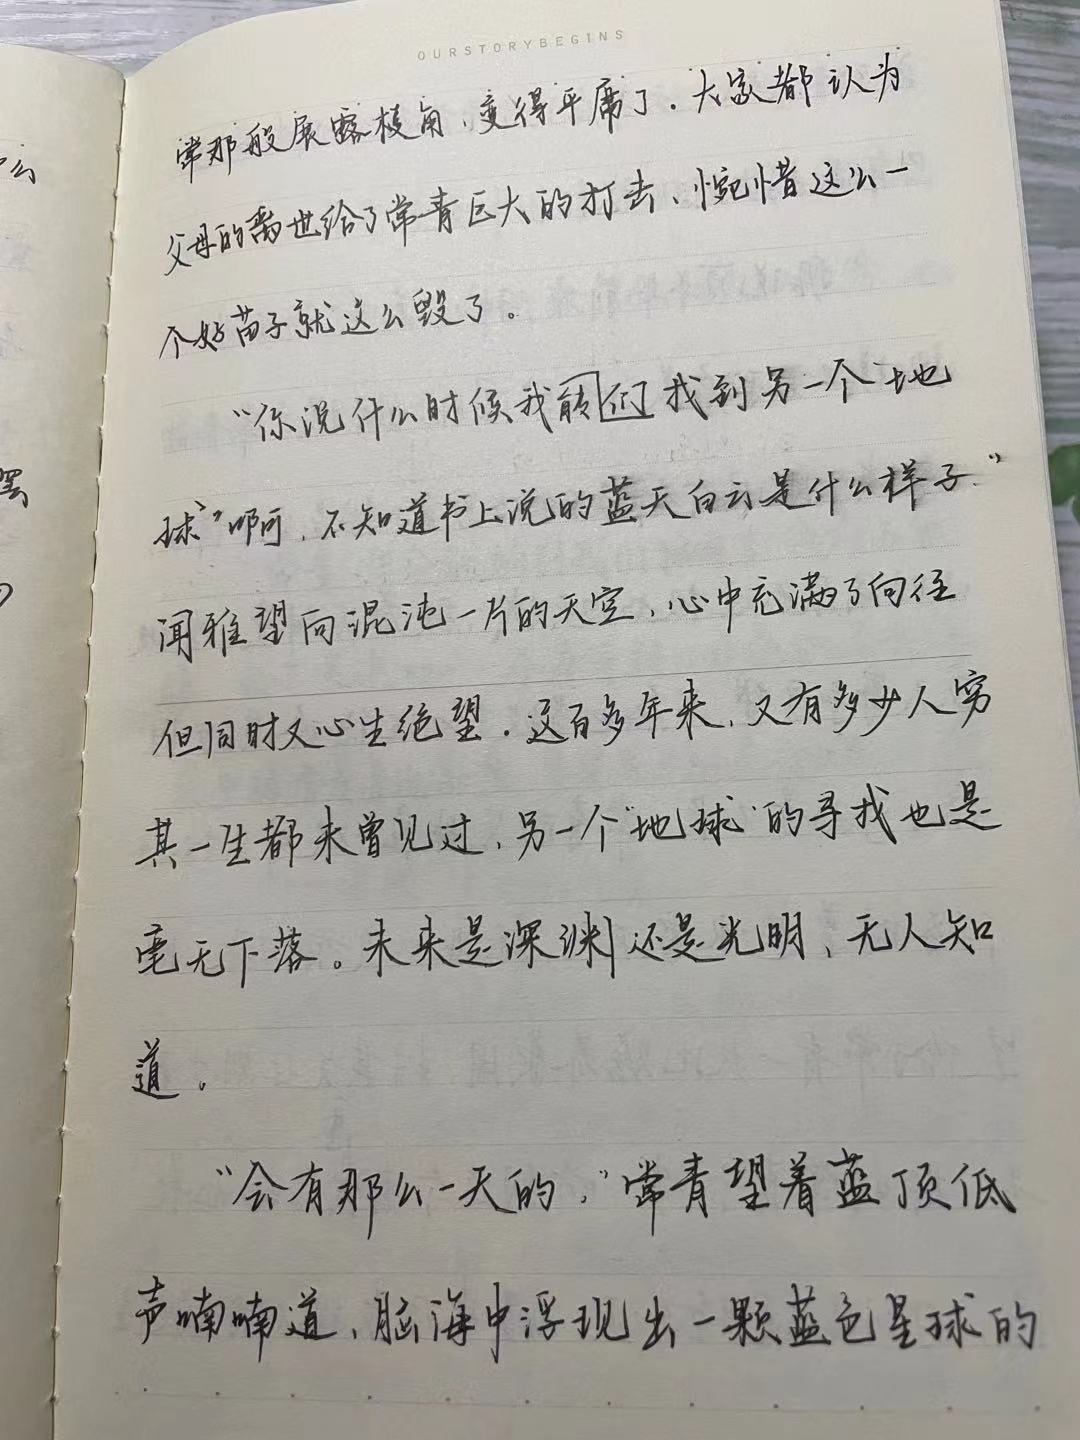 OURSTORYBEGINS
常那般展露棱角，变得平庸了．大家都认为
父母的离世给了常青巨大的打击、惋惜这么一
个好苗子就这么毁了。
“你说什么时候我能们找到另一个“地
球”啊，不知道书上说的蓝天白云是什么样子．”
闻雅望向混沌一片的天空，心中充满了向往
但同时又心生绝望．这百多年来，又有多少人穷
其一生都未曾见过，另一个“地球”的寻找也是
毫无下落。未来是深渊还是光明，无人知
道。
“会有那么一天的，”常青望着蓝顶低
声喃喃道，脑海中浮现出一颗蓝色星球的